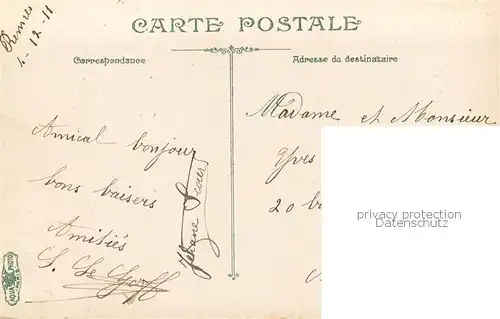 Rennes
4-12-11
CARTE POSTALE
Correspondance
Adresse du destinataire
Amical bonjour
bons baisers
Amitiés
S. Le Goff
Jehane
Madame et Monsieur
Yves
20
privacy protection
Datenschutz
AQUA PHOTO
PARIS